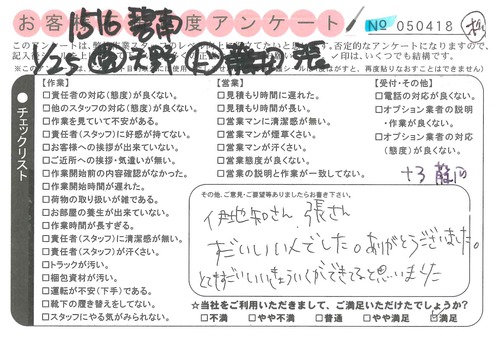 お客様満足度アンケート
No 050418
1516 碧南
1/25
【作業】
□責任者の対応(態度)が良くない。
□他のスタッフの対応(態度)が良くない。
□作業を見ていて不安がある。
□責任者(スタッフ)に好感が持てない。
□お客様への挨拶が出来ていない。
□ご近所への挨拶・気遣いが無い。
□作業開始前の内容確認がなかった。
□作業開始時間が遅れた。
□荷物の取り扱いが雑である。
□お部屋の養生が出来ていない。
□作業時間が長すぎる。
□責任者(スタッフ)に清潔感が無い。
□責任者(スタッフ)が汗くさい。
□トラックが汚い。
□梱包資材が汚い。
□運転が不安(下手)である。
□靴下の履き替えをしてない。
□スタッフにやる気がみられない。
【営業】
□見積もり時間に遅れた。
□見積もり時間が長い。
□営業マンに清潔感が無い。
□営業マンが煙草くさい。
□営業マンが汗くさい。
□営業態度が良くない。
□営業の説明と作業が一致してない。
【受付・その他】
□電話の対応が良くない。
□オプション業者の説明
・作業が良くない。
□オプション業者の対応
(態度)が良くない。
チェックリスト
その他、ご意見・ご要望等ありましたらお書き下さい。
伊地知さん、張さん
すごいいい人でした。ありがとうございました。
とてもすごいいいきょういくができてると思いました
☆当社をご利用いただきまして、ご満足いただけたでしょうか?
□不満 □やや不満 □普通 □やや満足 ☑満足